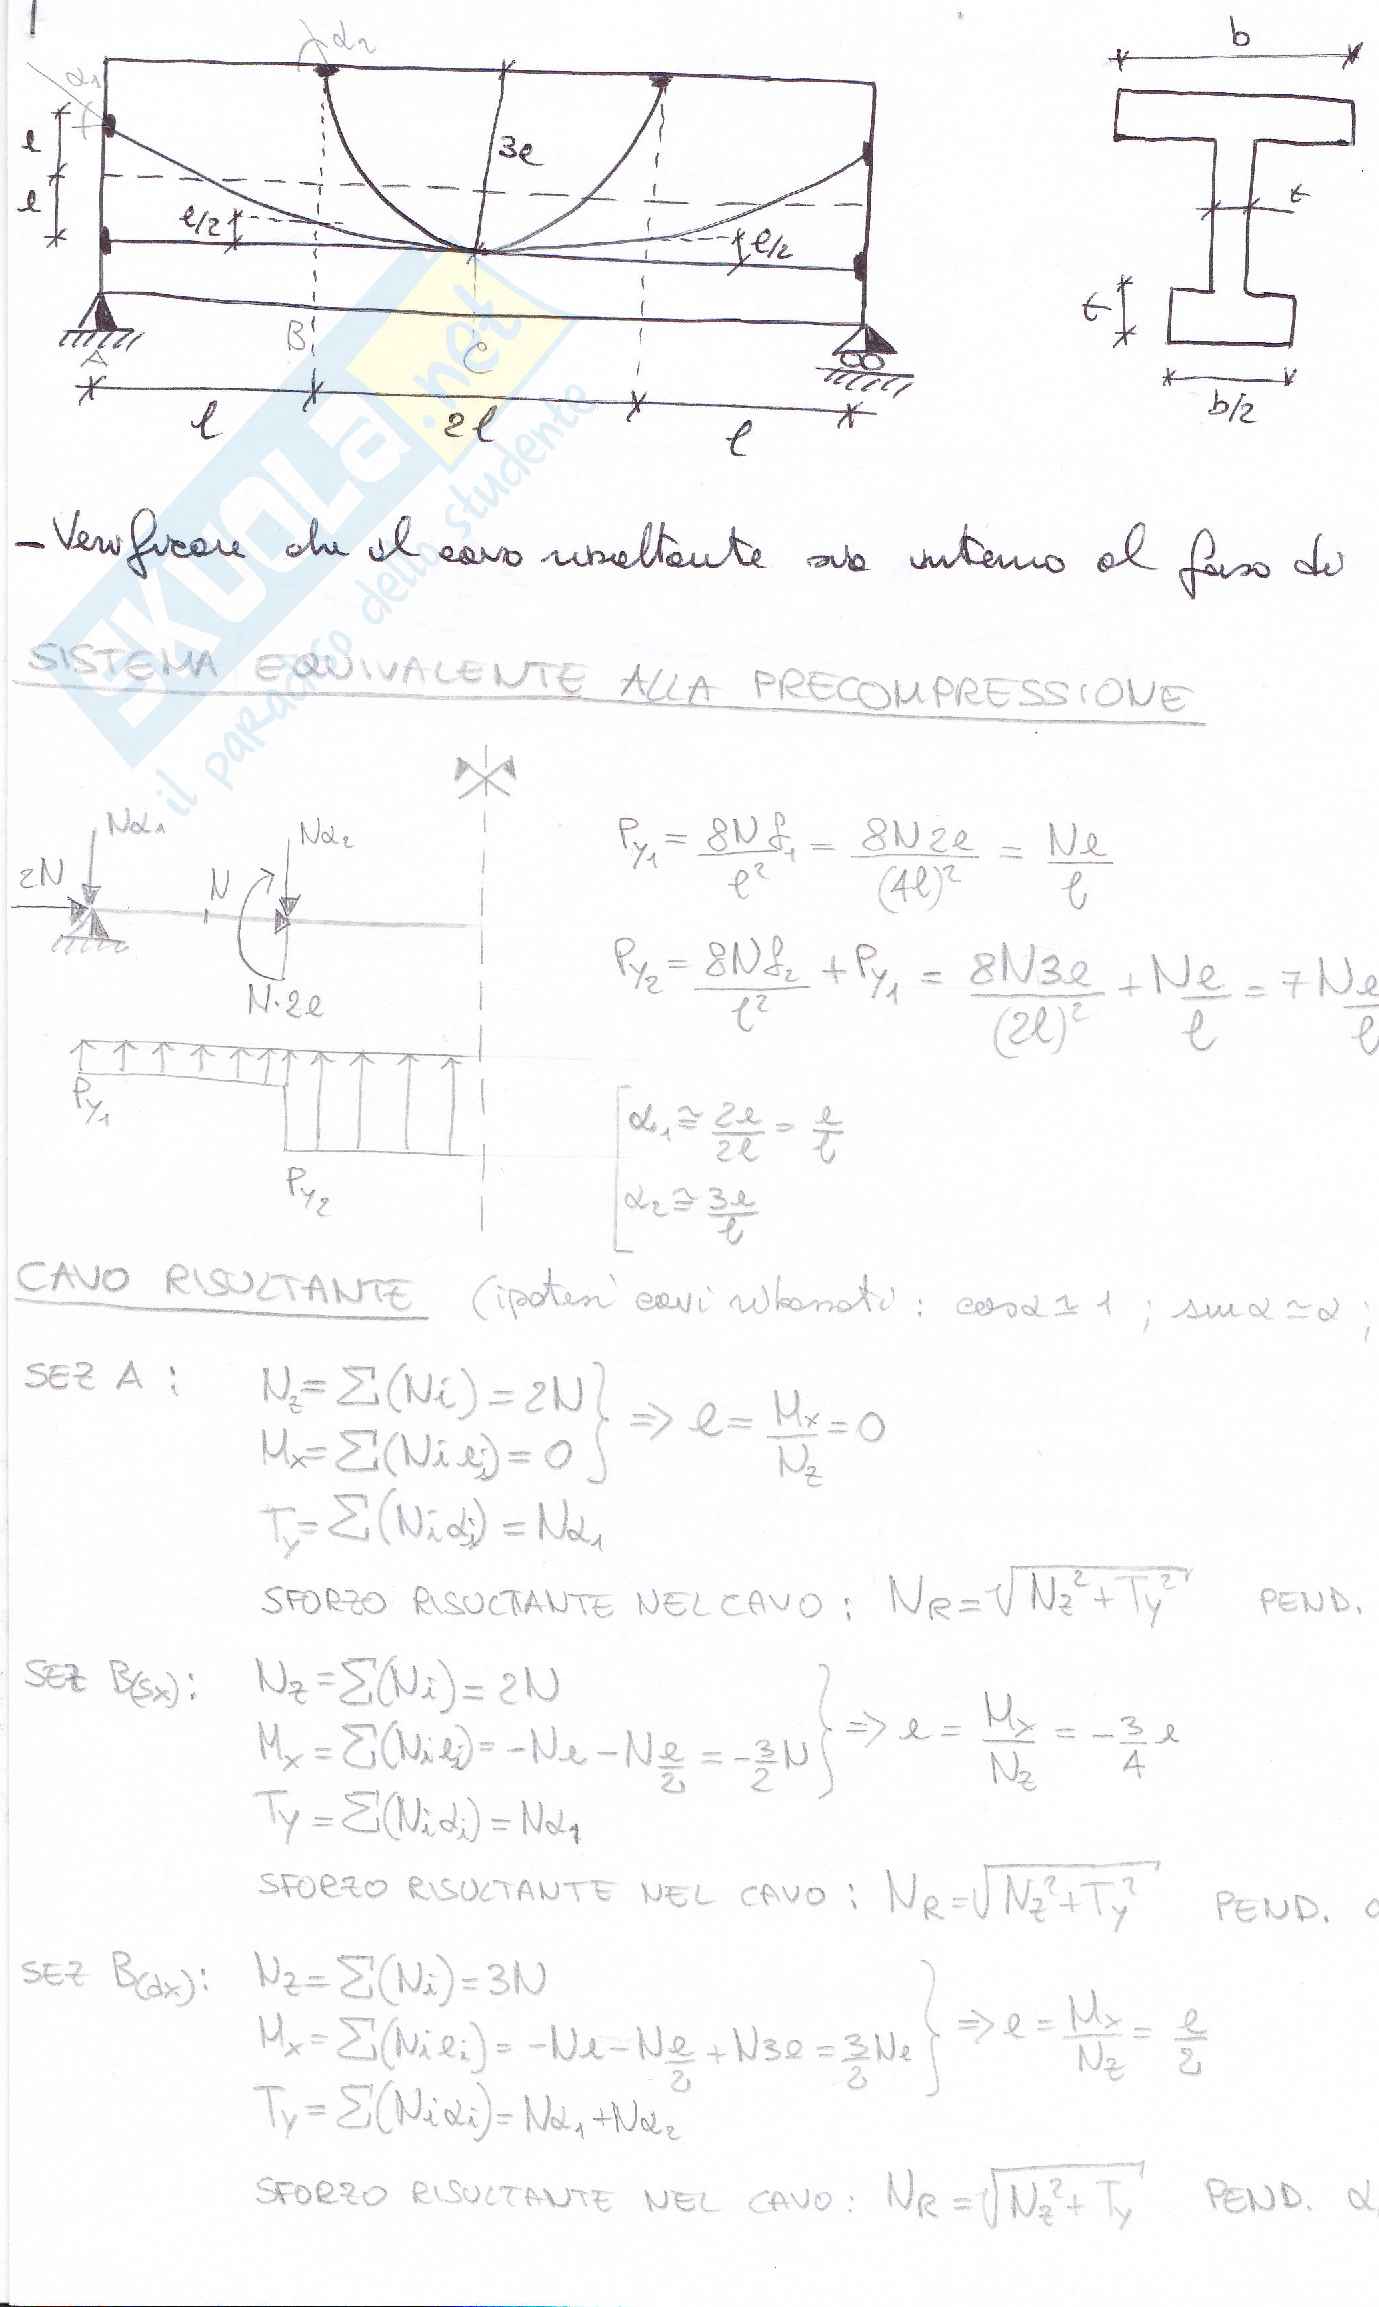 α₂
b
α₁
e
3e
t
e
e/2
e/2
t
A
B
C
b/2
l
2l
l
SKUOLA.net
il paradiso dello studente
- Verificare che il cavo risultante sia interno al fuso di
SISTEMA EQUIVALENTE ALLA PRECOMPRESSIONE
Nα₁
Nα₂
2N
N
N·2e
Py₁ = 8Nf₁/l² = 8N2e/(4l)² = Ne/l
Py₂ = 8Nf₂/l² + Py₁ = 8N3e/(2l)² + Ne/l = 7Ne/l
Py₁
Py₂
α₁ ≅ 2e/2l = e/l
α₂ ≅ 3e/l
CAVO RISULTANTE (ipotesi cavi ribassati: cosα ≃ 1 ; sinα ≃ α ;
SEZ A : Nz = Σ(Ni) = 2N
Mx = Σ(Ni ei) = 0 } ⇒ e = Mx/Nz = 0
Ty = Σ(Ni αi) = Nα₁
SFORZO RISULTANTE NEL CAVO : NR = √(Nz² + Ty²) PEND.
SEZ B(sx) : Nz = Σ(Ni) = 2N
Mx = Σ(Ni ei) = -Ne - Ne/2 = -3/2 N } ⇒ e = Mx/Nz = -3/4 e
Ty = Σ(Ni αi) = Nα₁
SFORZO RISULTANTE NEL CAVO : NR = √(Nz² + Ty²) PEND.
SEZ B(dx) : Nz = Σ(Ni) = 3N
Mx = Σ(Ni ei) = -Ne - Ne/2 + N3e = 3/2 Ne } ⇒ e = Mx/Nz = e/2
Ty = Σ(Ni αi) = Nα₁ + Nα₂
SFORZO RISULTANTE NEL CAVO : NR = √(Nz² + Ty) PEND. α